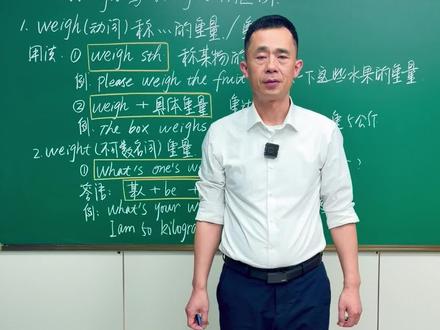 1. weigh(动词)称…的重量/重
用法: ① weigh sth 称某物的
例: Please weigh the fruit 下这些水果的重量
② weigh + 具体重量 重
例: The box weighs 重5公斤
2. weight(不可数名词)重量
① What's one's w ?
答语: 某人 + be +
例: What's your w
I am 50 kilogra